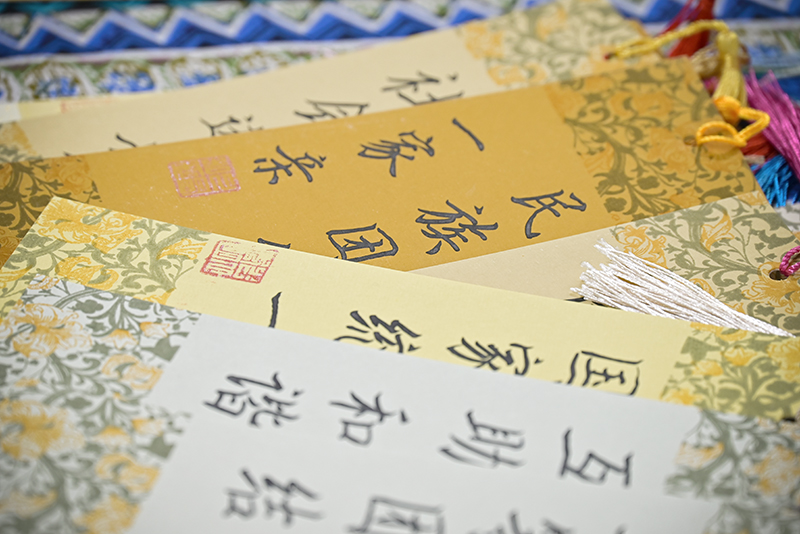 社会进
民族团
一家亲
国家统一
团结
互助和谐